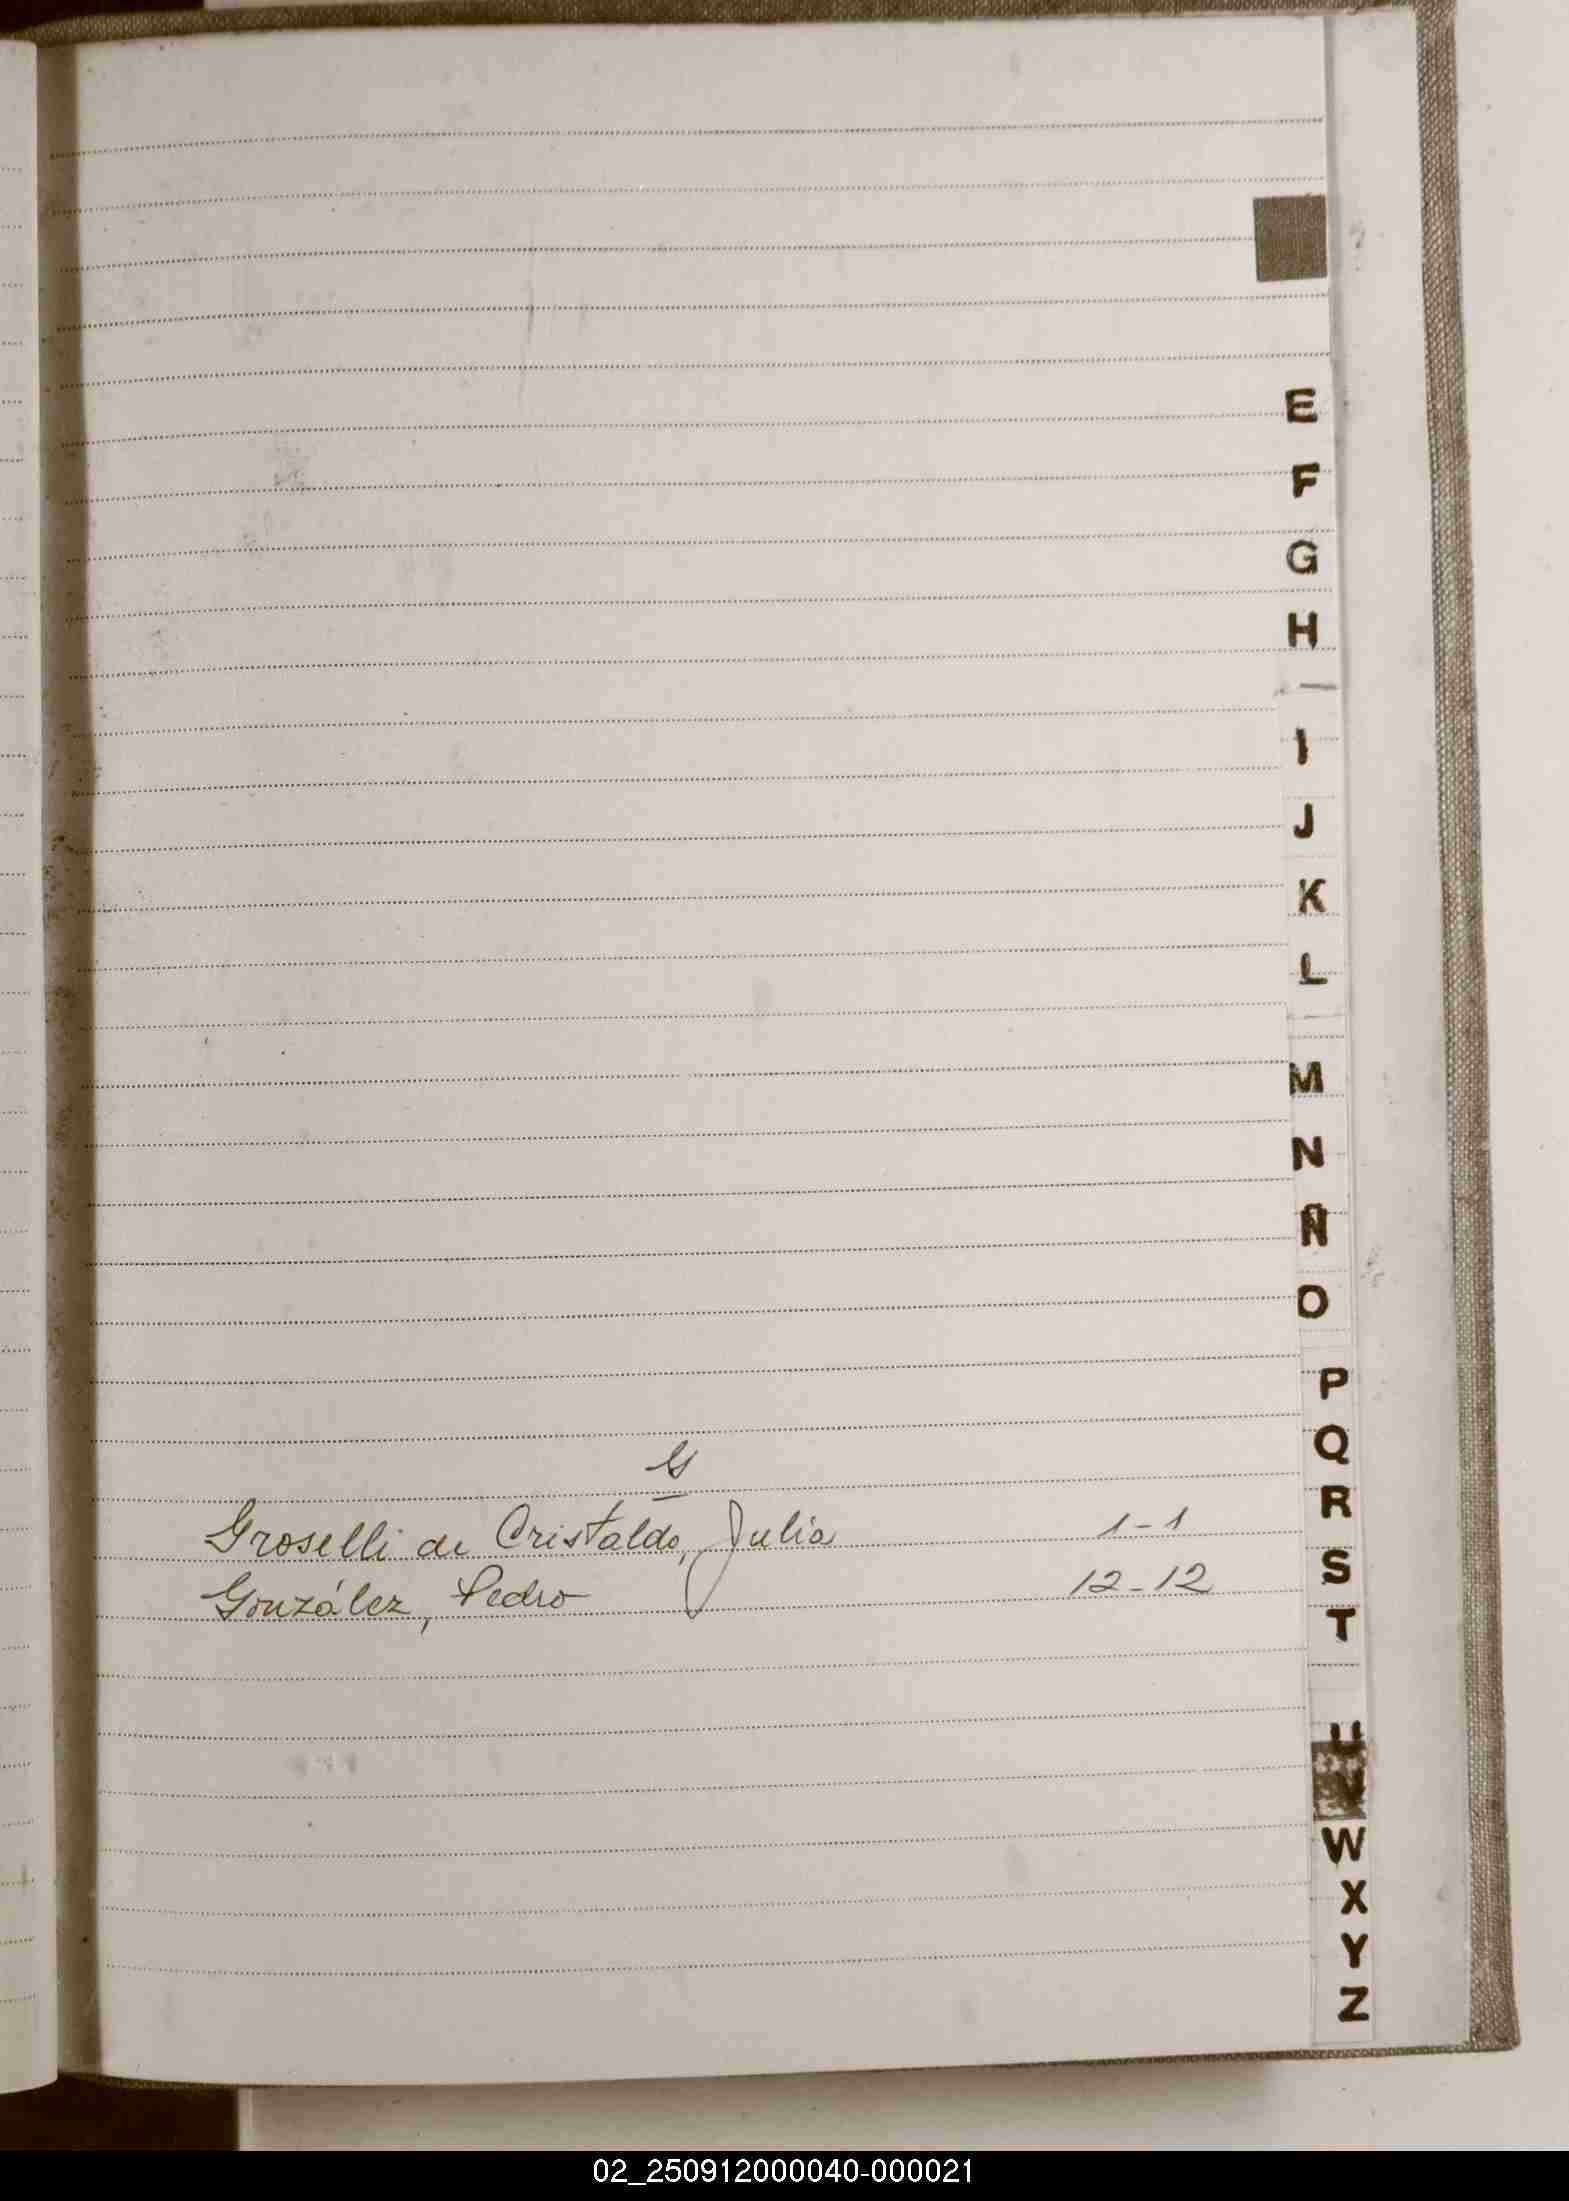 E
F
G
H
I
J
K
L
M
N
Ñ
O
P
Q
R
S
T
U
V
W
X
Y
Z
G
Groselli de Cristaldo, Julia 1-1
González, Pedro 12-12
02_250912000040-000021